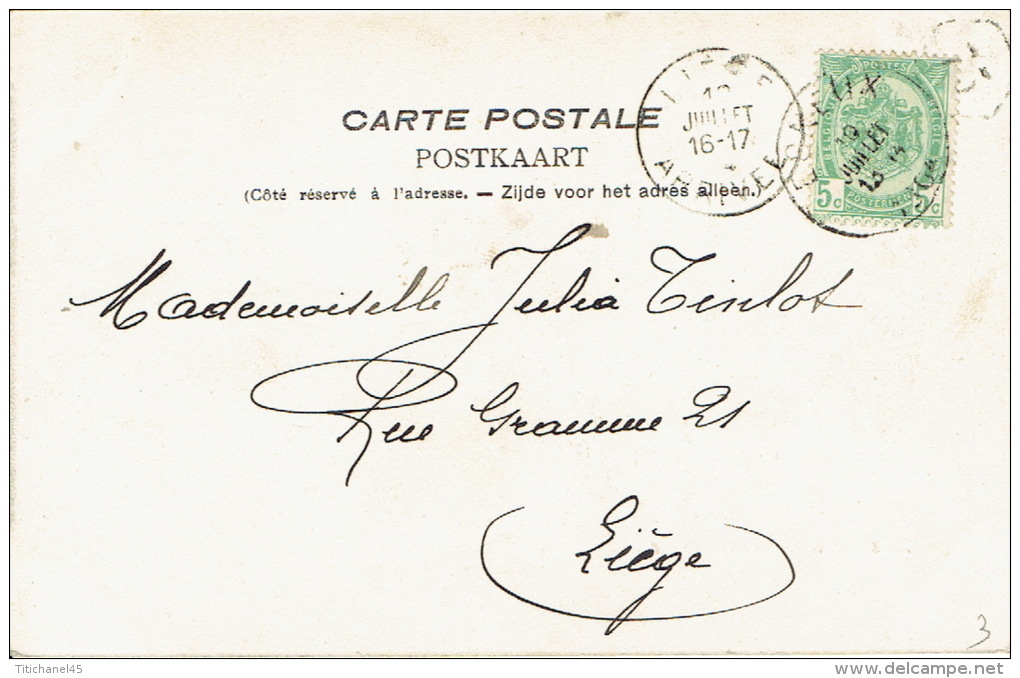 CARTE POSTALE
POSTKAART
(Côté réservé à l'adresse. — Zijde voor het adres alleen.)
10
JUILLET
16-17
POSTES
BELGIQUE
BELGIE
10
JUILLET
5c
Mademoiselle Julia Tinlot
Rue Gramme 21
Liège
3
Titichanel45
www.delcampe.net